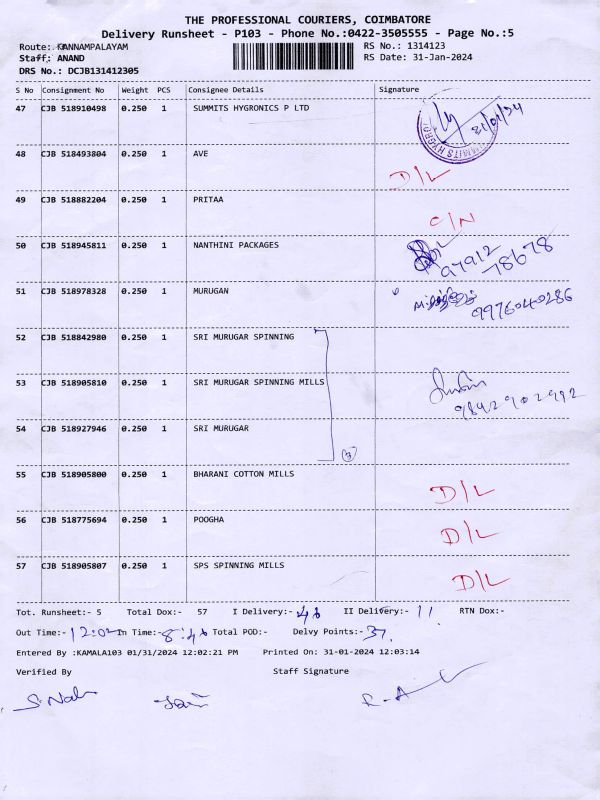 THE PROFESSIONAL COURIERS, COIMBATORE
Delivery Runsheet - P103 - Phone No.:0422-3505555 - Page No.:5
Route: KANNAMPALAYAM RS No.: 1314123
Staff: ANAND RS Date: 31-Jan-2024
DRS No.: DCJB131412305
S No Consignment No Weight PCS Consignee Details Signature
47 CJB 518910498 0.250 1 SUMMITS HYGRONICS P LTD 31/01/24
48 CJB 518493804 0.250 1 AVE D/L
49 CJB 518882204 0.250 1 PRITAA C/N
50 CJB 518945811 0.250 1 NANTHINI PACKAGES 97912 78678
51 CJB 518978328 0.250 1 MURUGAN 9976040286
52 CJB 518842980 0.250 1 SRI MURUGAR SPINNING
53 CJB 518905810 0.250 1 SRI MURUGAR SPINNING MILLS 9842902992
54 CJB 518927946 0.250 1 SRI MURUGAR 3
55 CJB 518905800 0.250 1 BHARANI COTTON MILLS D/L
56 CJB 518775694 0.250 1 POOGHA D/L
57 CJB 518905807 0.250 1 SPS SPINNING MILLS D/L
Tot. Runsheet:- 5 Total Dox:- 57 I Delivery:- 46 II Delivery:- 11 RTN Dox:-
Out Time:- 12:02 In Time:- 8:46 Total POD:- Delvy Points:- 37
Entered By :KAMALA103 01/31/2024 12:02:21 PM Printed On: 31-01-2024 12:03:14
Verified By Staff Signature